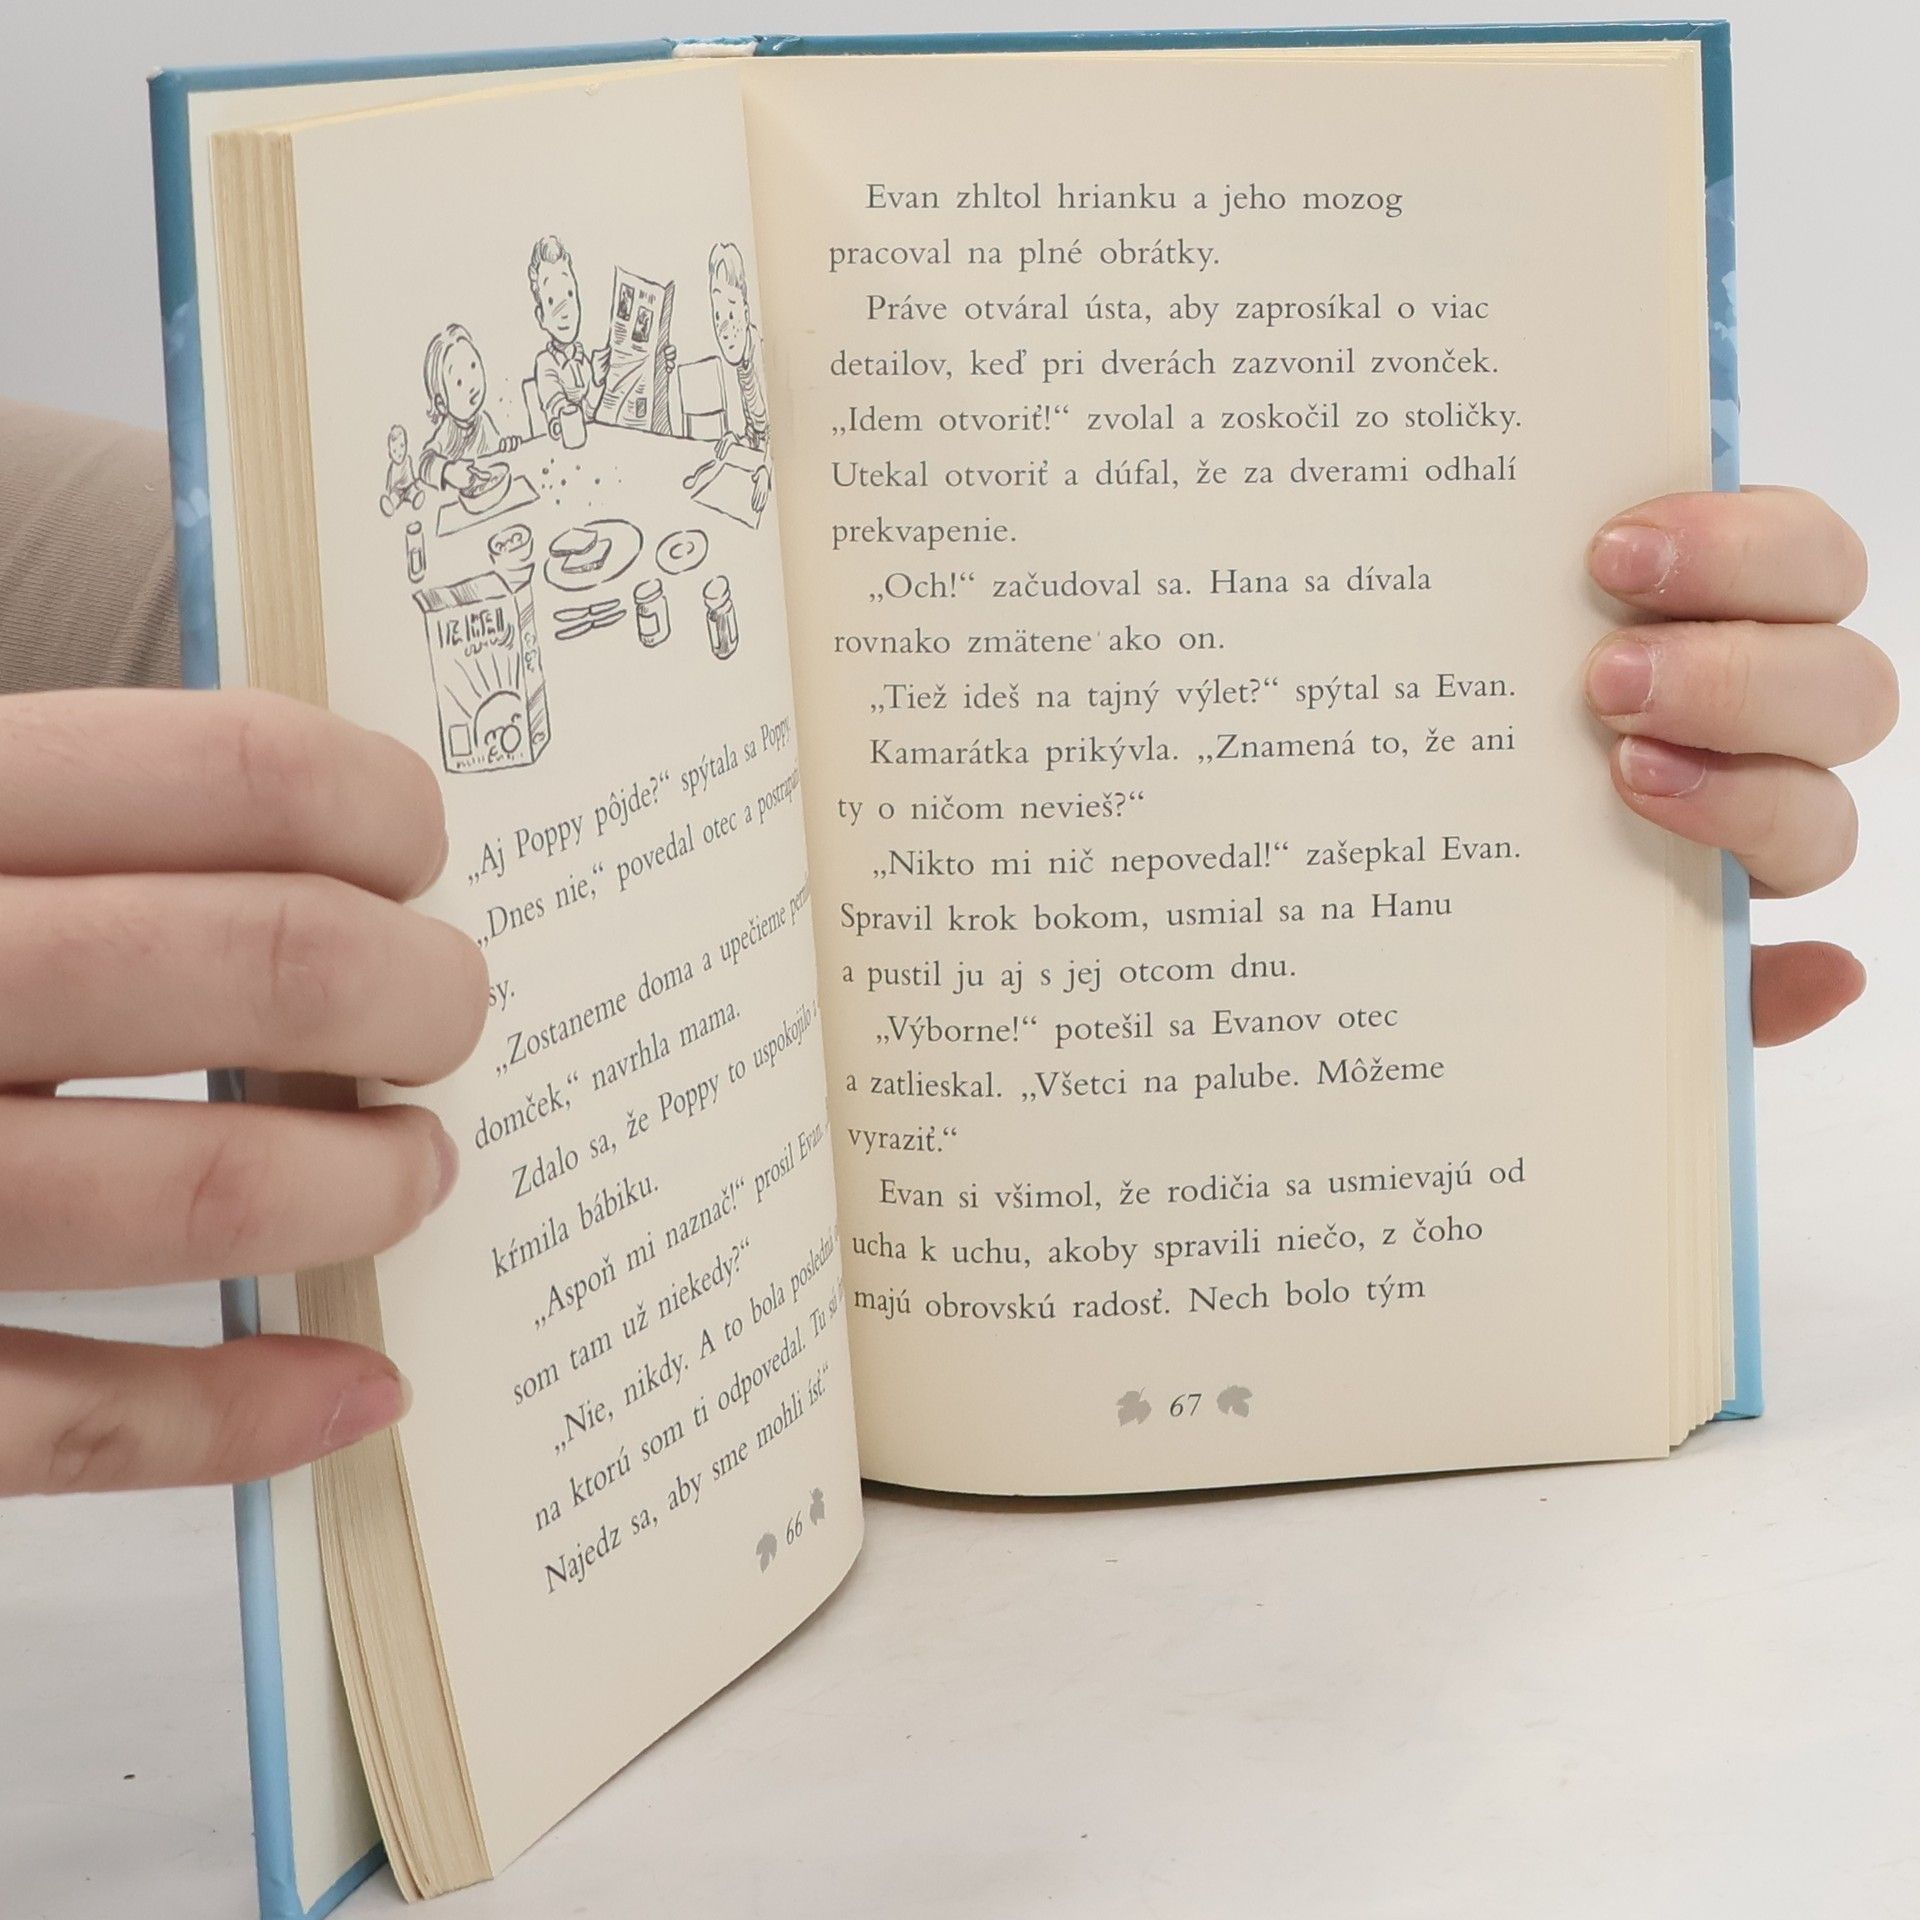 „Aj Poppy pôjde?“ spýtala sa Poppy.
„Dnes nie,“ povedal otec a
sy.
„Zostaneme doma a upečieme
domček,“ navrhla mama.
Zdalo sa, že Poppy to uspokojilo a
kŕmila bábiku.
„Aspoň mi naznač!“ prosil Evan.
som tam už niekedy?“
„Nie, nikdy. A to bola posledná
na ktorú som ti odpovedal. Tu sú
Najedz sa, aby sme mohli ísť.“
66
Evan zhltol hrianku a jeho mozog
pracoval na plné obrátky.
Práve otváral ústa, aby zaprosíkal o viac
detailov, keď pri dverách zazvonil zvonček.
„Idem otvoriť!“ zvolal a zoskočil zo stoličky.
Utekal otvoriť a dúfal, že za dverami odhalí
prekvapenie.
„Och!“ začudoval sa. Hana sa dívala
rovnako zmätene ako on.
„Tiež ideš na tajný výlet?“ spýtal sa Evan.
Kamarátka prikývla. „Znamená to, že ani
ty o ničom nevieš?“
„Nikto mi nič nepovedal!“ zašepkal Evan.
Spravil krok bokom, usmial sa na Hanu
a pustil ju aj s jej otcom dnu.
„Výborne!“ potešil sa Evanov otec
a zatlieskal. „Všetci na palube. Môžeme
vyraziť.“
Evan si všimol, že rodičia sa usmievajú od
ucha k uchu, akoby spravili niečo, z čoho
majú obrovskú radosť. Nech bolo tým
67